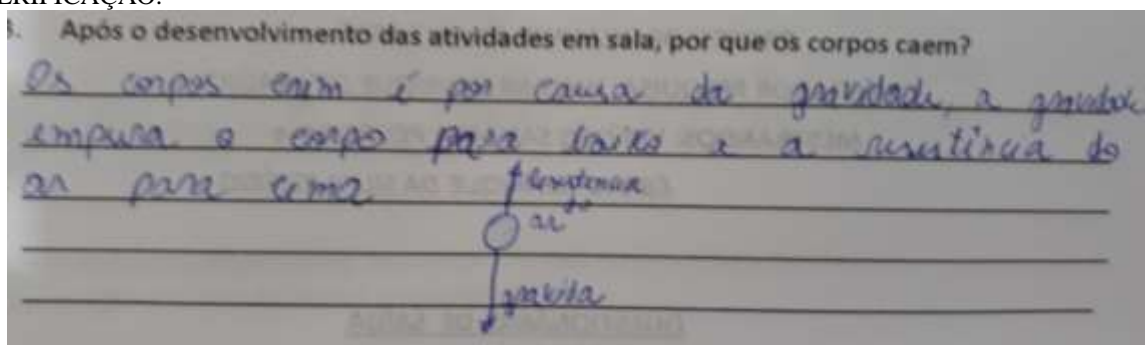 ERIFICAÇÃO:
3. Após o desenvolvimento das atividades em sala, por que os corpos caem?
Os corpos caim é por causa da gravidade, a gravidade
empura o corpo para baixo e a resistência do
ar para cima
ar
gravida